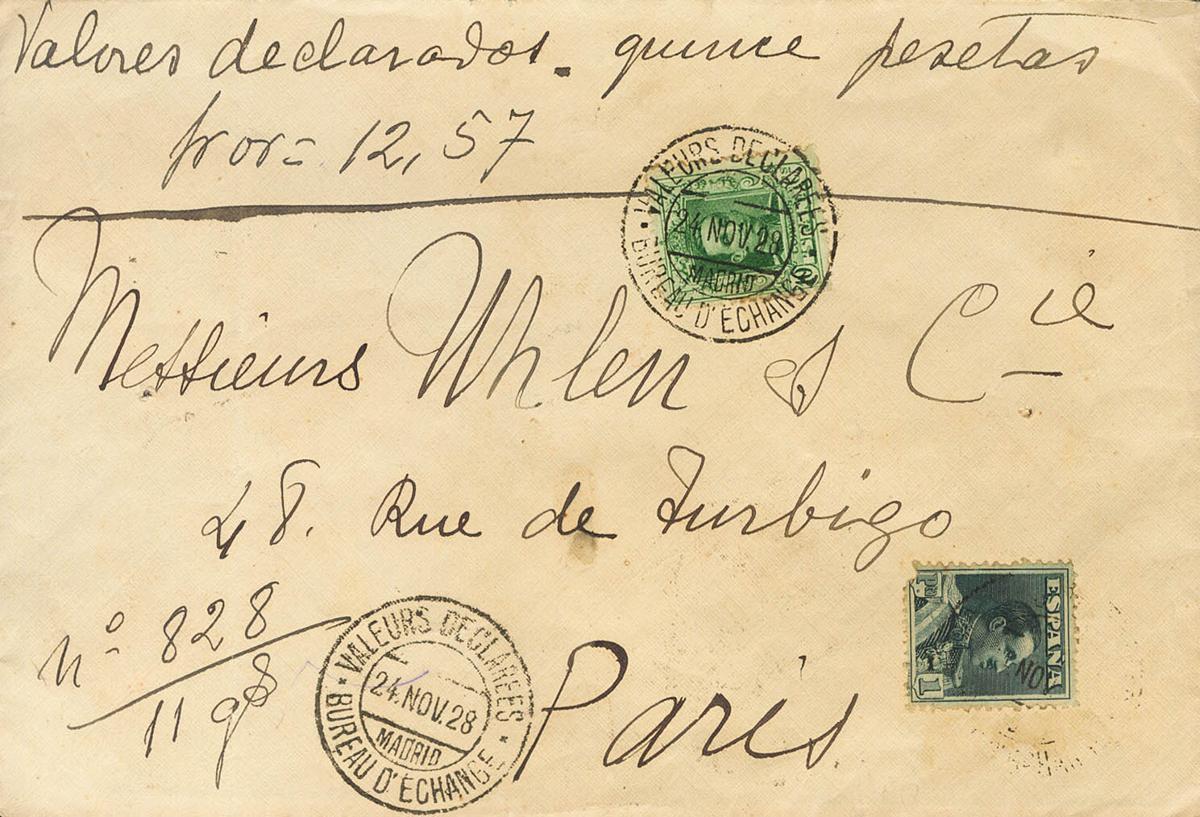 Valores declarados. quince pesetas
fr or= 12,57
VALEURS DECLAREES
24 NOV. 28
MADRID
BUREAU D'ECHANGE
Messieurs Uhlen & Cie
48. Rue de Turbigo
Nº 828
11 gs
VALEURS DECLAREES
24. NOV. 28
MADRID
BUREAU D'ECHANGE
Paris
ESPAÑA
1 PTA
NOV